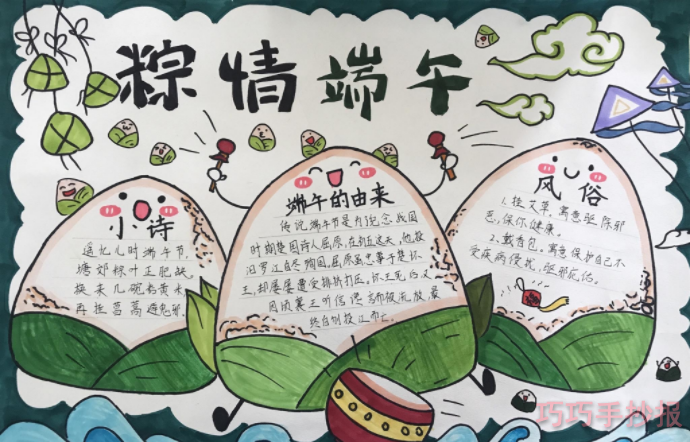 粽情端午
小诗
追忆儿时端午节,
塘郊粽叶正肥缺。
换来几碗
再挂菖蒿避邪。
端午的由来
传说端午节是为纪念战国
时期楚国诗人屈原,在五月五这天,他投
汨罗江自尽殉国,屈原虽忠事于楚怀
王,却屡屡遭受排挤打压,怀王死后又
因顷襄王听信谗言而被流放,最
终自刎投江而亡。
风俗
1.挂艾草,寓意驱除邪
恶,保你健康。
2.戴香包,寓意保护自己不
受疾病侵扰,驱邪
巧巧手抄报